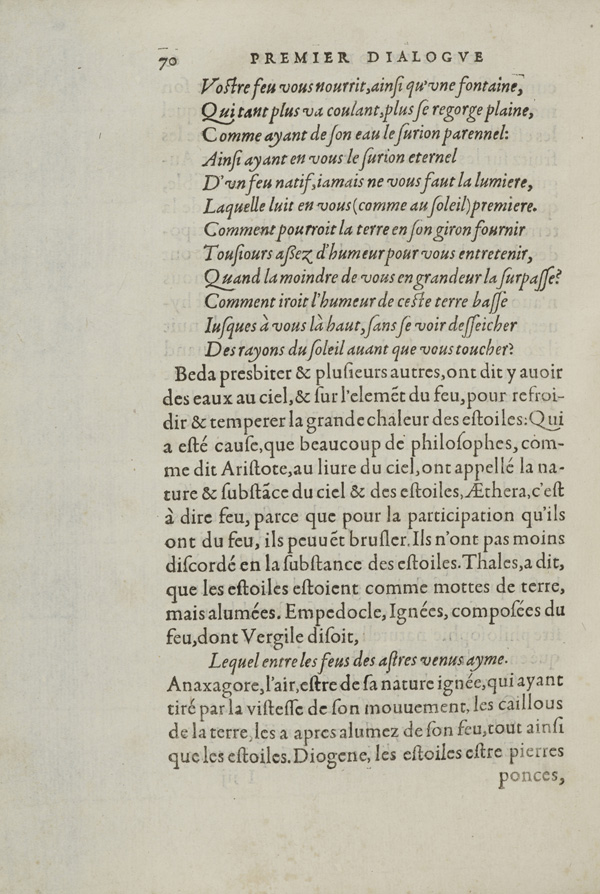 70 PREMIER DIALOGVE
Vostre feu vous nourrit, ainsi qu'vne fontaine,
Qui tant plus va coulant, plus se regorge plaine,
Comme ayant de son eau le surion parennel:
Ainsi ayant en vous le surion eternel
D'vn feu natif, iamais ne vous faut la lumiere,
Laquelle luit en vous (comme au soleil) premiere.
Comment pourroit la terre en son giron fournir
Tousiours assez d'humeur pour vous entretenir,
Quand la moindre de vous en grandeur la surpasse?
Comment iroit l'humeur de ceste terre basse
Iusques à vous là haut, sans se voir desseicher
Des rayons du soleil auant que vous toucher?
Beda presbiter & plusieurs autres, ont dit y auoir
des eaux au ciel, & sur l'elemẽt du feu, pour refroi-
dir & temperer la grande chaleur des estoiles: Qui
a esté cause, que beaucoup de philosophes, com-
me dit Aristote, au liure du ciel, ont appellé la na-
ture & substãce du ciel & des estoiles, Æthera, c'est
à dire feu, parce que pour la participation qu'ils
ont du feu, ils peuuẽt brusler. Ils n'ont pas moins
discordé en la substance des estoiles. Thales, a dit,
que les estoiles estoient comme mottes de terre,
mais alumées. Empedocle, Ignées, composées du
feu, dont Vergile disoit,
Lequel entre les feus des astres venus ayme.
Anaxagore, l'air, estre de sa nature ignée, qui ayant
tiré par la vistesse de son mouuement, les caillous
de la terre, les a apres alumez de son feu, tout ainsi
que les estoiles. Diogene, les estoiles estre pierres
ponces,